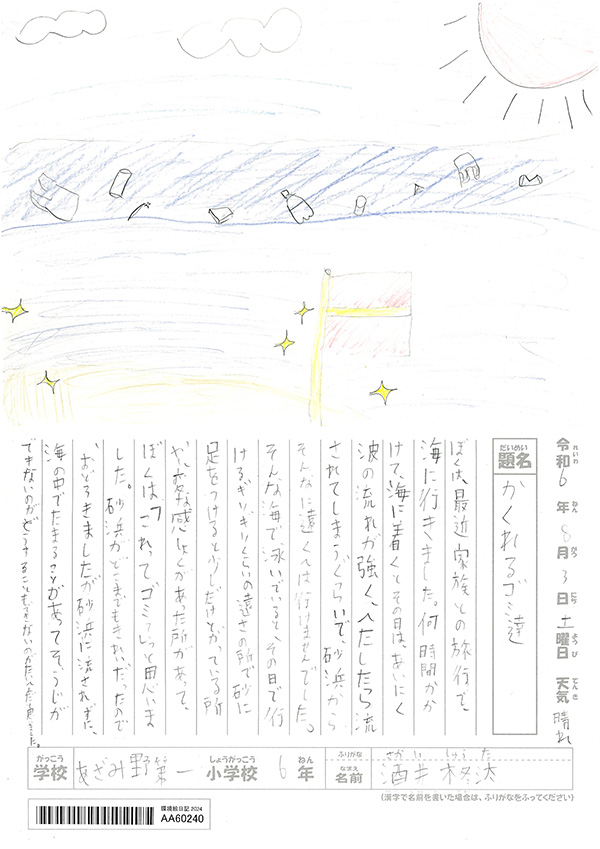 令和6年8月3日土曜日 天気 晴れ
れいわ ねん がつ にち ようび てんき
だいめい
題名 かくれるゴミ達
ぼくは、最近家族との旅行で、
海に行きました。何時間かか
けて、海に着くとその日は、あいにく
波の流れが強く、へたしたら流
されてしまうぐらいで、砂浜から
そんなに遠くへは行けませんでした。
そんな海で、泳いでいると、その日で行
けるぎりぎりくらいの遠さの所で砂に
足をつけると少しだけとがっている所
や、変な感しょくがあった所があって、
ぼくは「これってゴミ?」っと思いま
した。砂浜がどこまでもきれいだったので
、おどろきましたが砂浜に流されずに、
海の中でたまることがあってそうじが
できないのがどうすることもできないのがたいへんだと思いました。
がっこう しょうがっこう ねん ふりがな さかい しゅうた
学校 あざみ野第一 小学校 6年
なまえ
名前 酒井柊汰
(漢字で名前を書いた場合は、ふりがなをふってください)
環境絵日記2024
AA60240